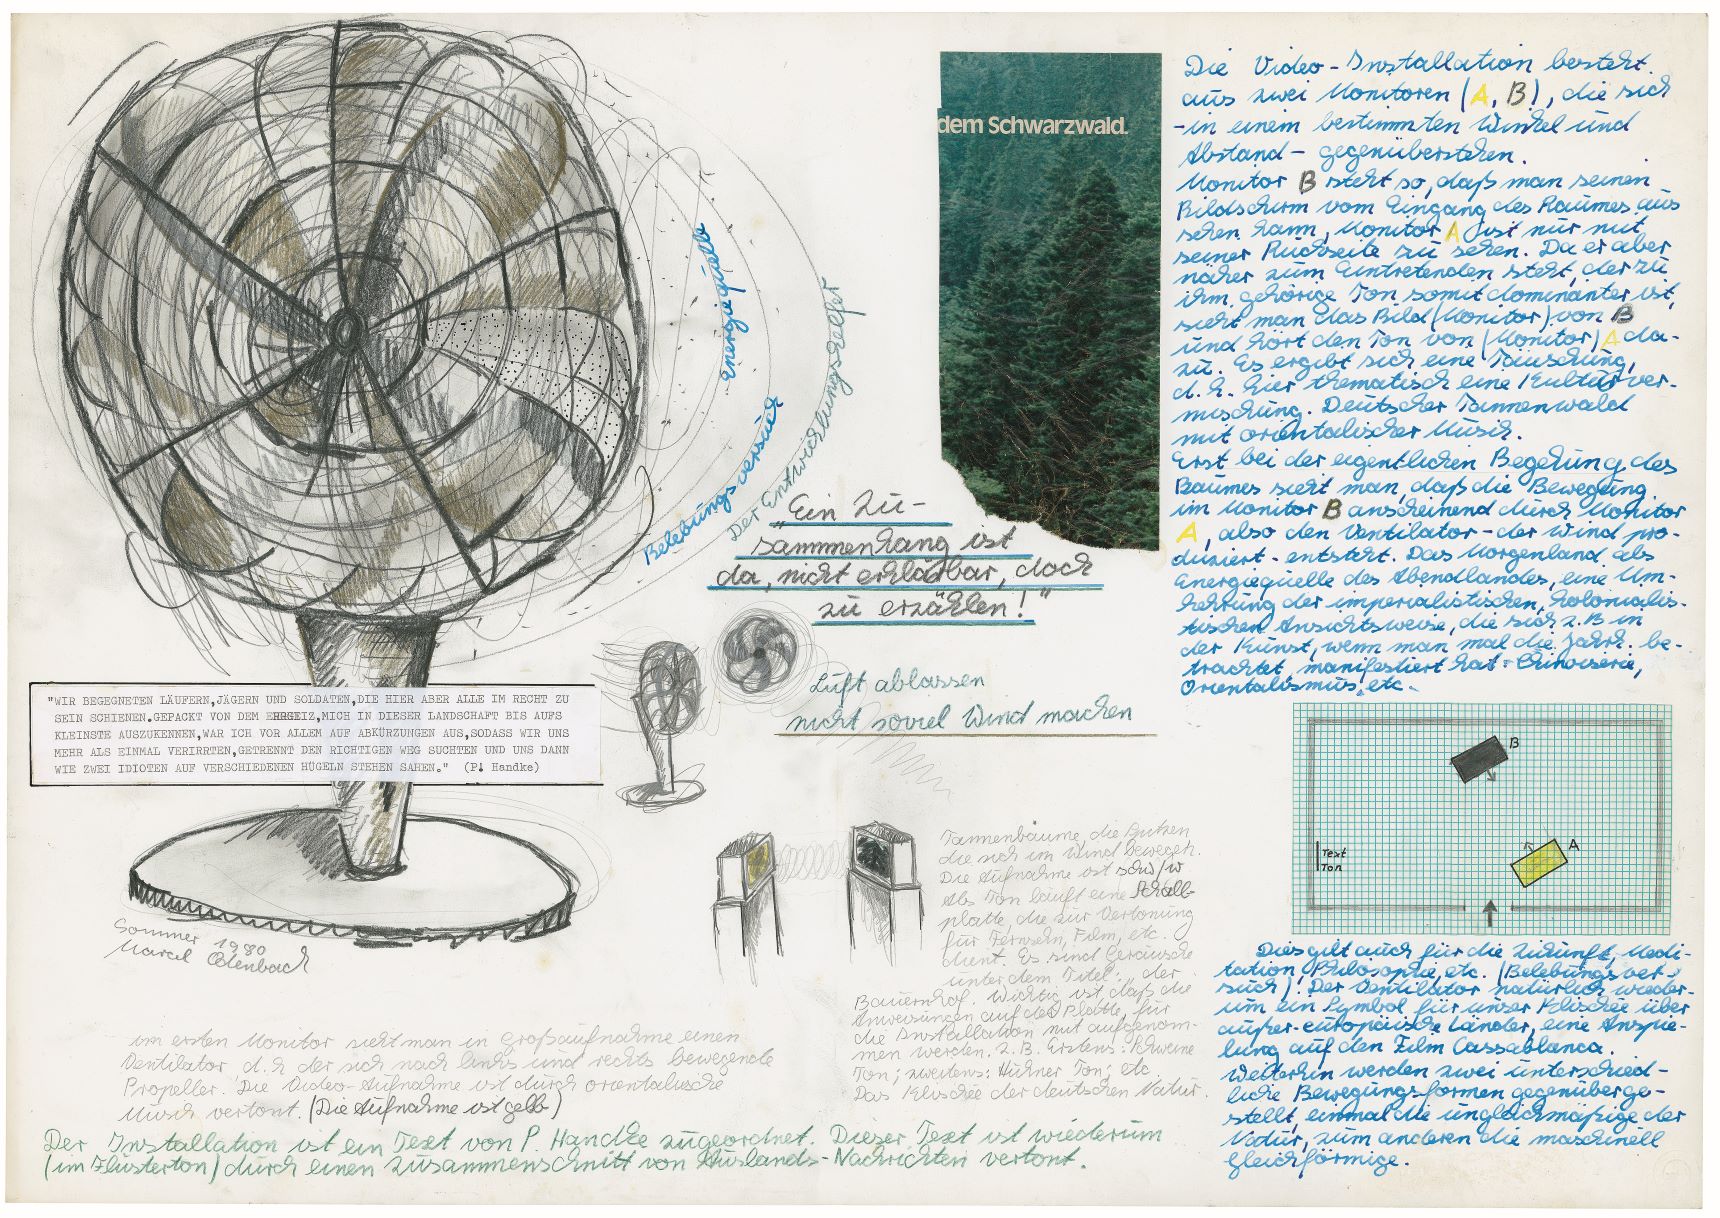 dem Schwarzwald.
Energiequelle
Belebungsversuch
Der Entwicklungshelfer
"Ein Zu-
sammenhang ist
da, nicht erklärbar, doch
zu erzählen!"
Luft ablassen
nicht soviel Wind machen
"WIR BEGEGNETEN LÄUFERN,JÄGERN UND SOLDATEN,DIE HIER ABER ALLE IM RECHT ZU
SEIN SCHIENEN.GEPACKT VON DEM EHRGEIZ,MICH IN DIESER LANDSCHAFT BIS AUFS
KLEINSTE AUSZUKENNEN,WAR ICH VOR ALLEM AUF ABKÜRZUNGEN AUS,SODASS WIR UNS
MEHR ALS EINMAL VERIRRTEN,GETRENNT DEN RICHTIGEN WEG SUCHTEN UND UNS DANN
WIE ZWEI IDIOTEN AUF VERSCHIEDENEN HÜGELN STEHEN SAHEN." (P. Handke)
Sommer 1980
Marcel Odenbach
im ersten Monitor sieht man in Großaufnahme einen
Ventilator d.h der sich nach links und rechts bewegende
Propeller. Die Video-Aufnahme ist durch orientalische
Musik vertont. (Die Aufnahme ist gelb)
Der Installation ist ein Text von P. Handke zugeordnet. Dieser Text ist wiederum
(im Flüsterton) durch einen Zusammenschnitt von Auslands-Nachrichten vertont.
Tannenbäume, die Spitzen
die sich im Wind bewegen.
Die Aufnahme ist schw/w
Als Ton läuft eine Schall-
platte, die zur Vertonung
für Fernsehn, Film, etc.
dient. Es sind Geräusche
unter dem Titel: "der
Bauernhof. Wichtig ist daß die
Anweisungen auf der Platte, für
die Installation mit aufgenom-
men werden. z.B. Erstens: Schweine
Ton; zweitens: Hühner Ton; etc
Das Klischée der deutschen Natur.
Die Video-Installation besteht
aus zwei Monitoren (A, B), die sich
-in einem bestimmten Winkel und
Abstand- gegenüberstehen.
Monitor B steht so, daß man seinen
Bildschirm vom Eingang des Raumes aus
sehen kann, Monitor A ist nur mit
seiner Rückseite zu sehen. Da er aber
näher zum Eintretenden steht, der zu
ihm gehörige Ton somit dominanter ist,
sieht man das Bild (Monitor) von B
und hört den Ton von (Monitor) A da-
zu. Es ergibt sich eine Täuschung,
d.h. hier thematisch eine Kulturver-
mischung. Deutscher Tannenwald
mit orientalischer Musik.
Erst bei der eigentlichen Begehung des
Raumes sieht man, daß die Bewegung
im Monitor B anscheinend durch Monitor
A, also den Ventilator - der Wind pro-
duziert - entsteht. Das Morgenland als
Energiequelle des Abendlandes, eine Um-
kehrung der imperialistischen, kolonialis-
tischen Ansichtsweise, die sich z.B in
der Kunst, wenn man mal die Jahrh. be-
trachtet, manifestiert hat: Chinoiserie,
Orientalismus, etc.
B
A
Text
Ton
Dies gilt auch für die Zukunft, Medi-
tation, Philosophie, etc. (Belebungsver-
such). Der Ventilator natürlich wieder-
um ein Symbol für unser Klischée über
außer-europäische Länder, eine Anspie-
lung auf den Film Cassablanca.
Weiterhin werden zwei unterschied-
liche Bewegungsformen gegenüberge-
stellt, einmal die ungleichmäßige der
Natur, zum anderen die maschinell
gleichförmige.